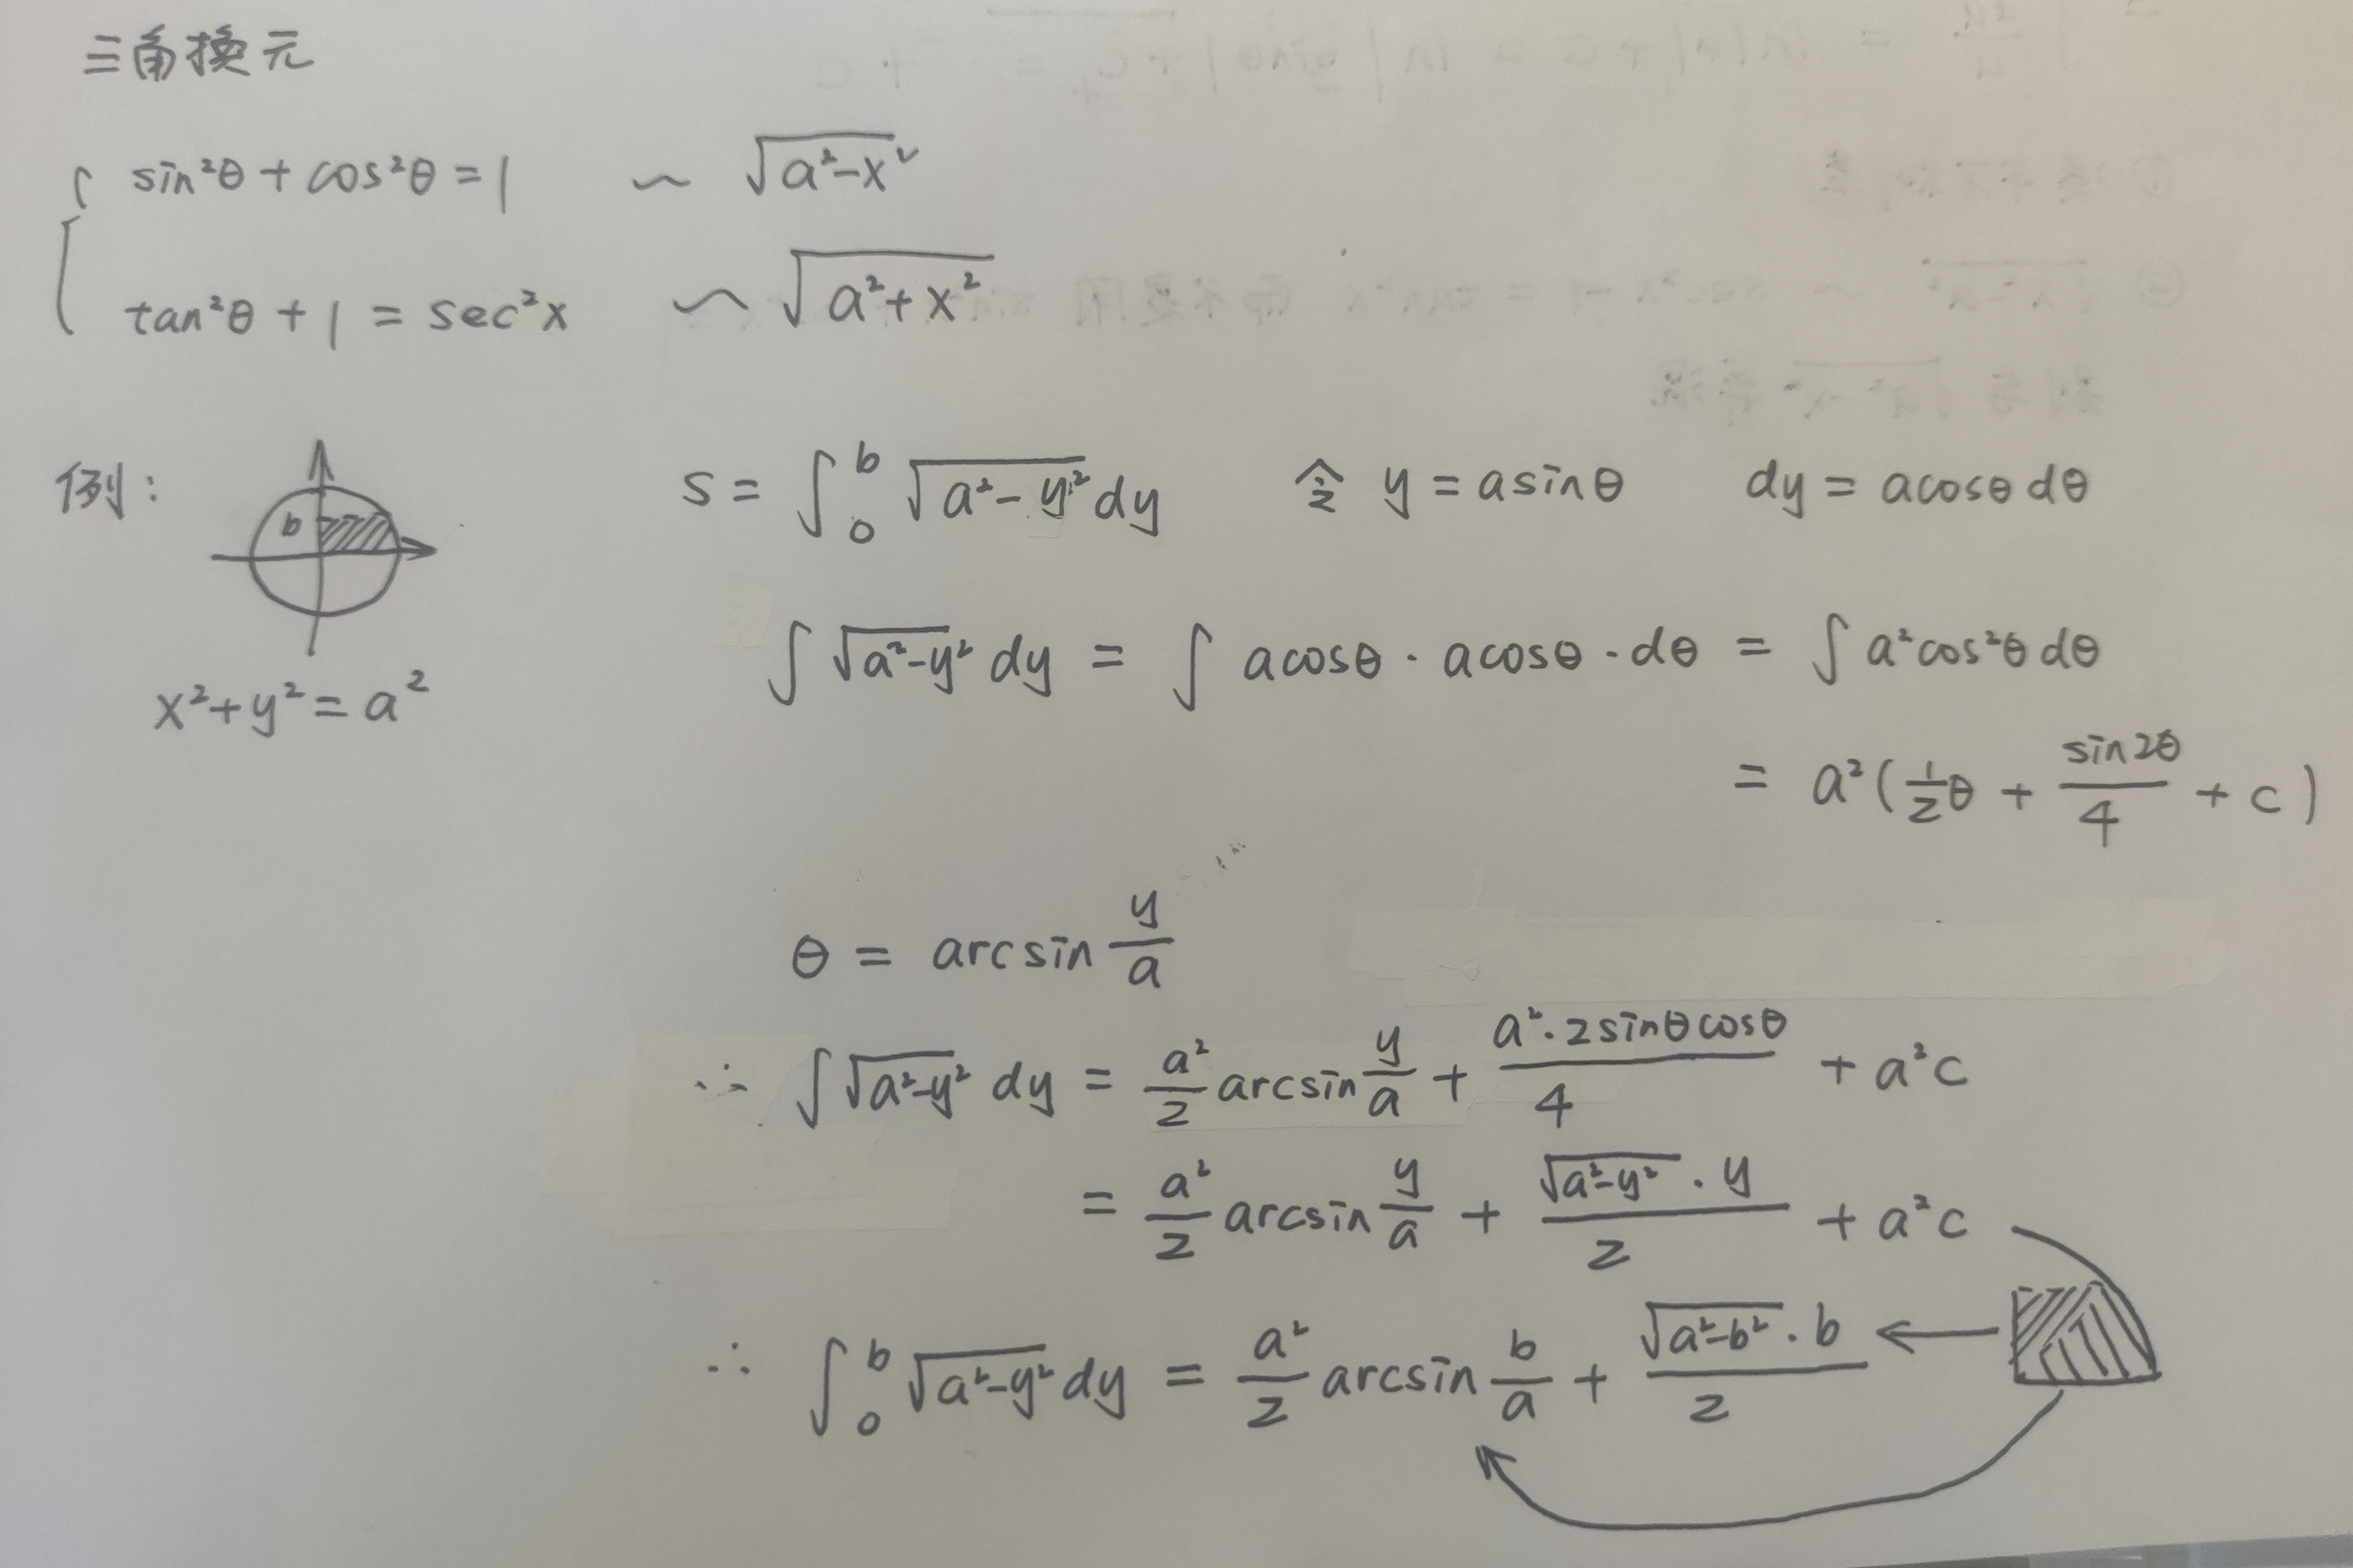 三角换元
sin²θ + cos²θ = 1 ~ √(a²-x²)
tan²θ + 1 = sec²x ~ √(a²+x²)
例: b
x²+y² = a²
s = ∫₀ᵇ √(a²-y²) dy 令 y = asinθ dy = acosθ dθ
∫ √(a²-y²) dy = ∫ acosθ · acosθ · dθ = ∫ a²cos²θ dθ
= a² (1/2 θ + sin2θ/4 + c)
θ = arcsin y/a
∴ ∫ √(a²-y²) dy = a²/2 arcsin y/a + a²·2sinθcosθ/4 + a²c
= a²/2 arcsin y/a + √(a²-y²) · y/2 + a²c
∴ ∫₀ᵇ √(a²-y²) dy = a²/2 arcsin b/a + √(a²-b²) · b/2